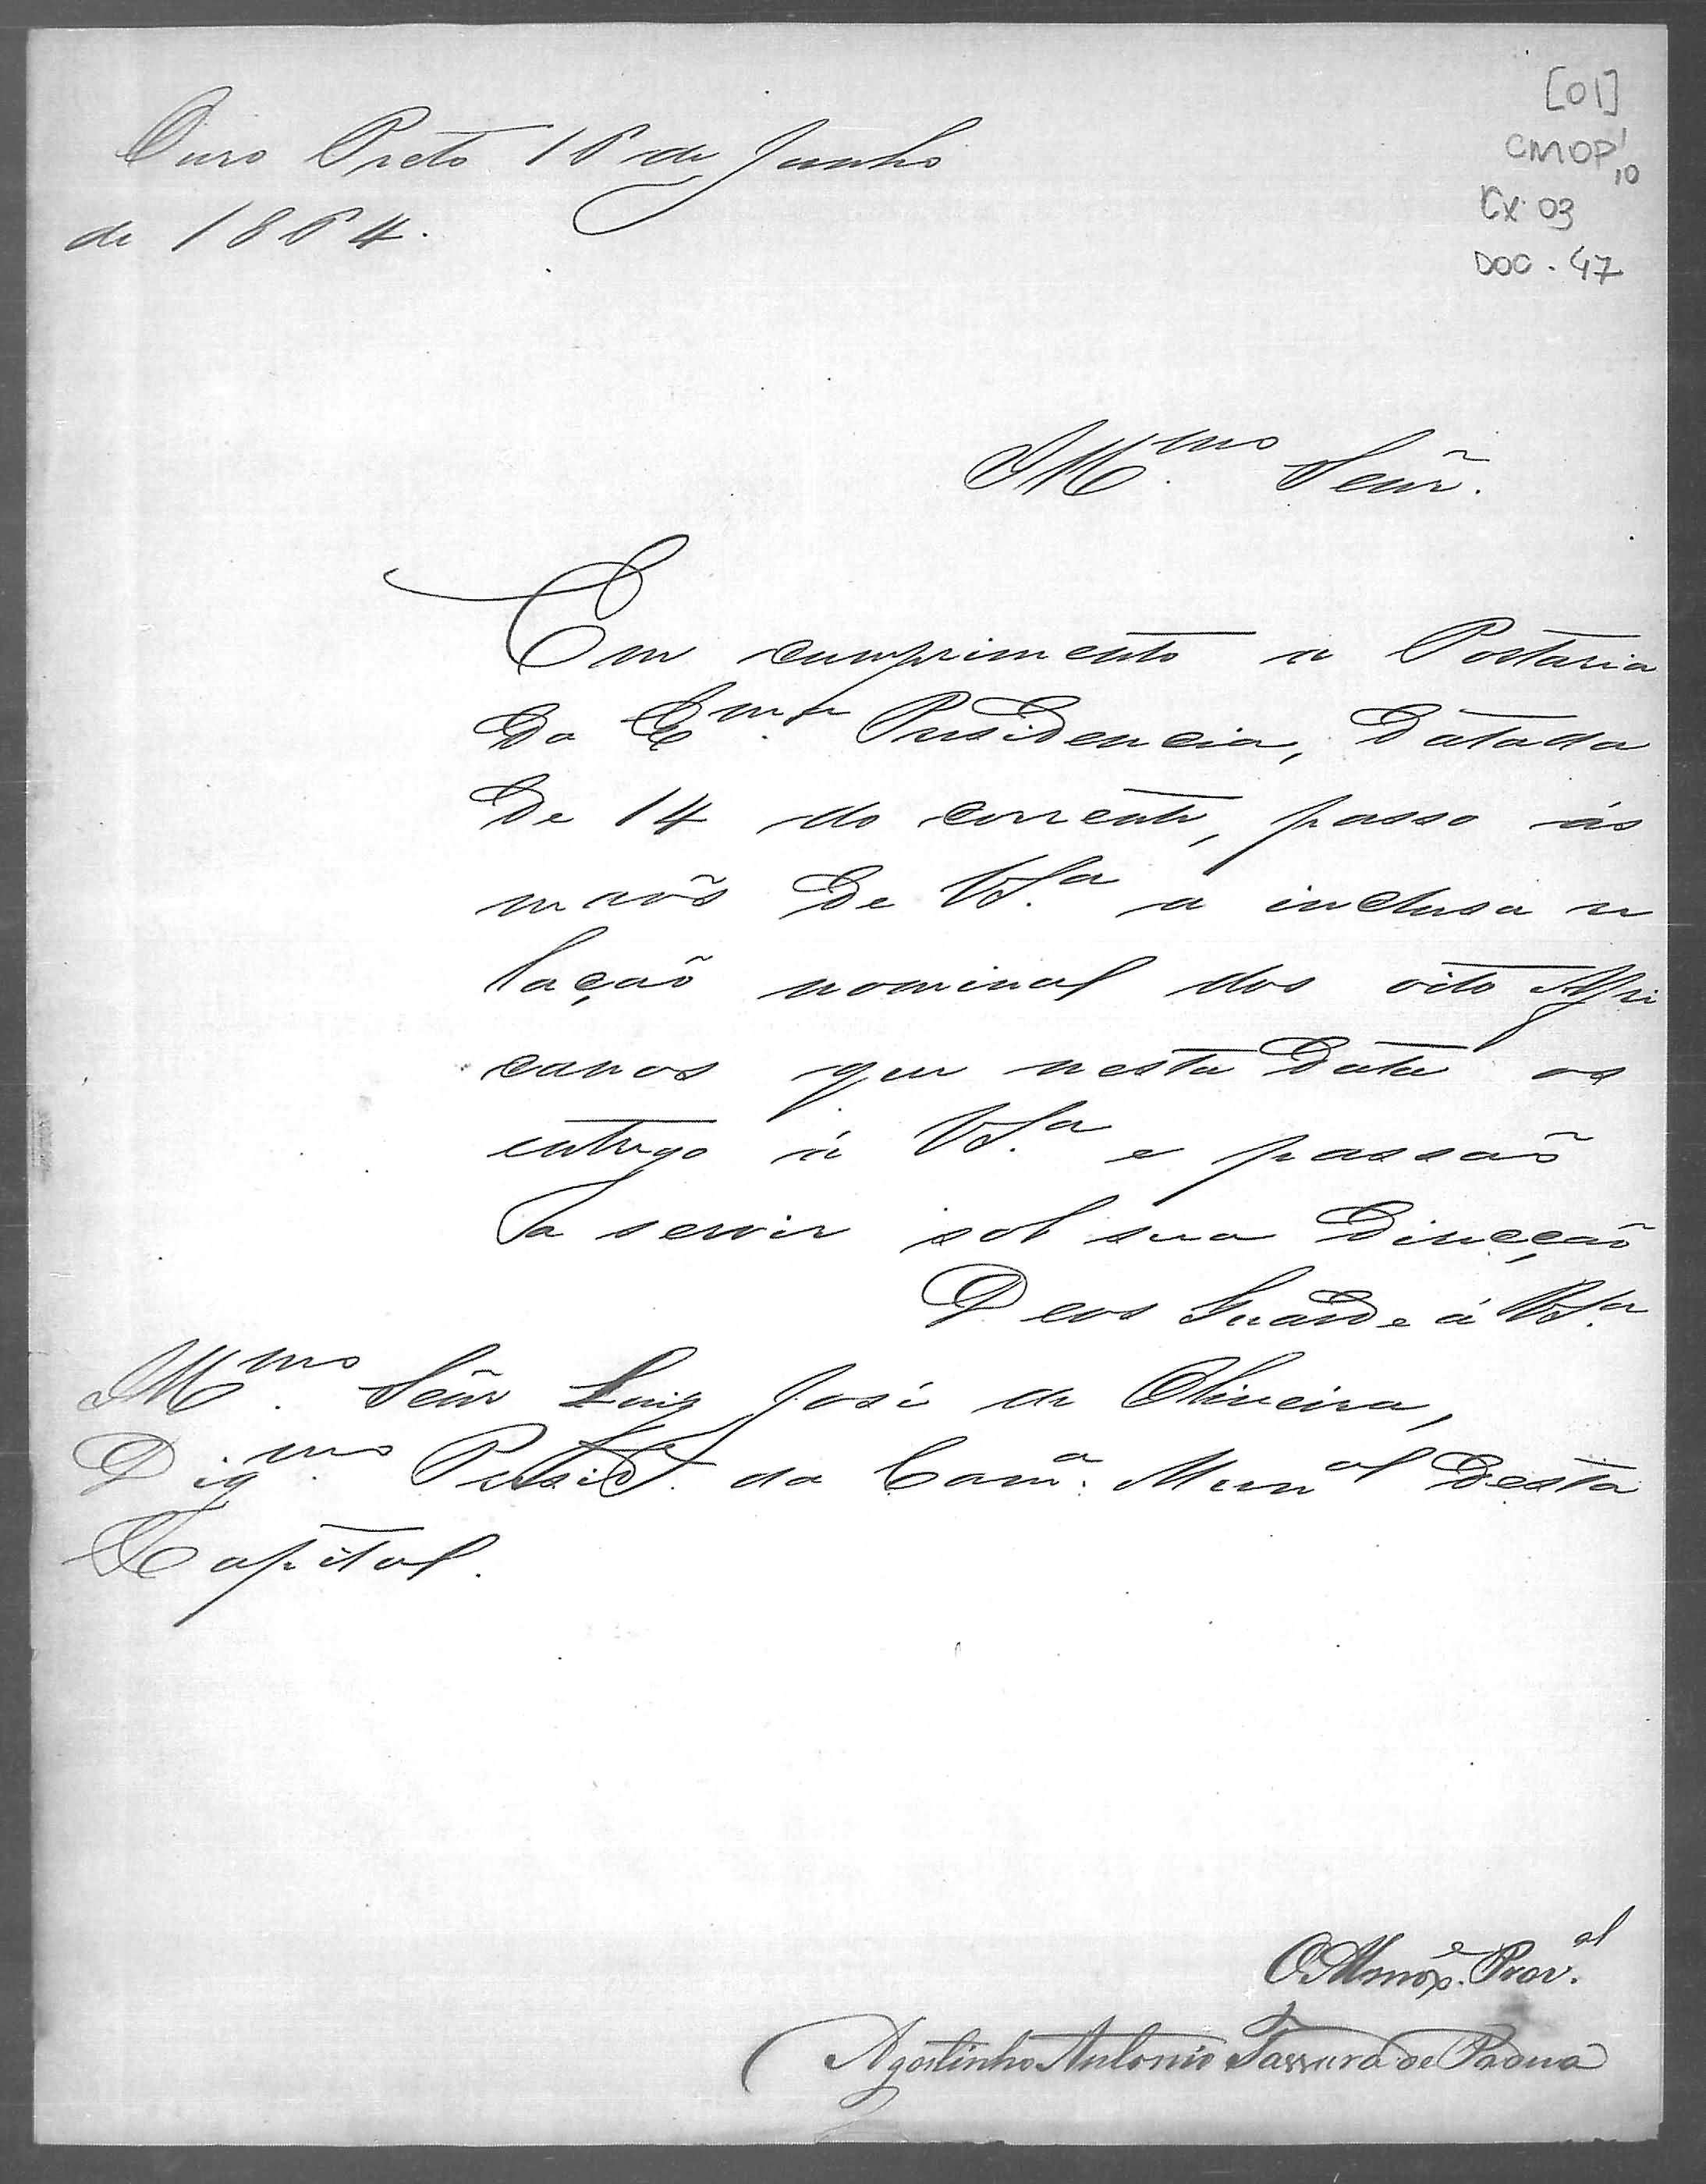 [01]
CMOP 1,10
Cx. 03
DOC. 47
Ouro Preto 16 de Junho
de 1864.
Illmo. Senr.
Em cumprimento a Portaria
da Exma. Presidencia, datada
de 14 do corrente, passo ás
maõs de VSa. a inclusa re
laçaõ nominal dos oito Afri
canos que nesta data os
entrego á VSa. e passaõ
a servir sob sua direcçaõ
Deos Guarde á VSa.
Illmo. Senr Luiz José de Oliveira,
Digmo. Preside. da Cama. Munal desta
Capital.
O Almoxe. Proval.
Agostinho Antonio Tassara de Padua